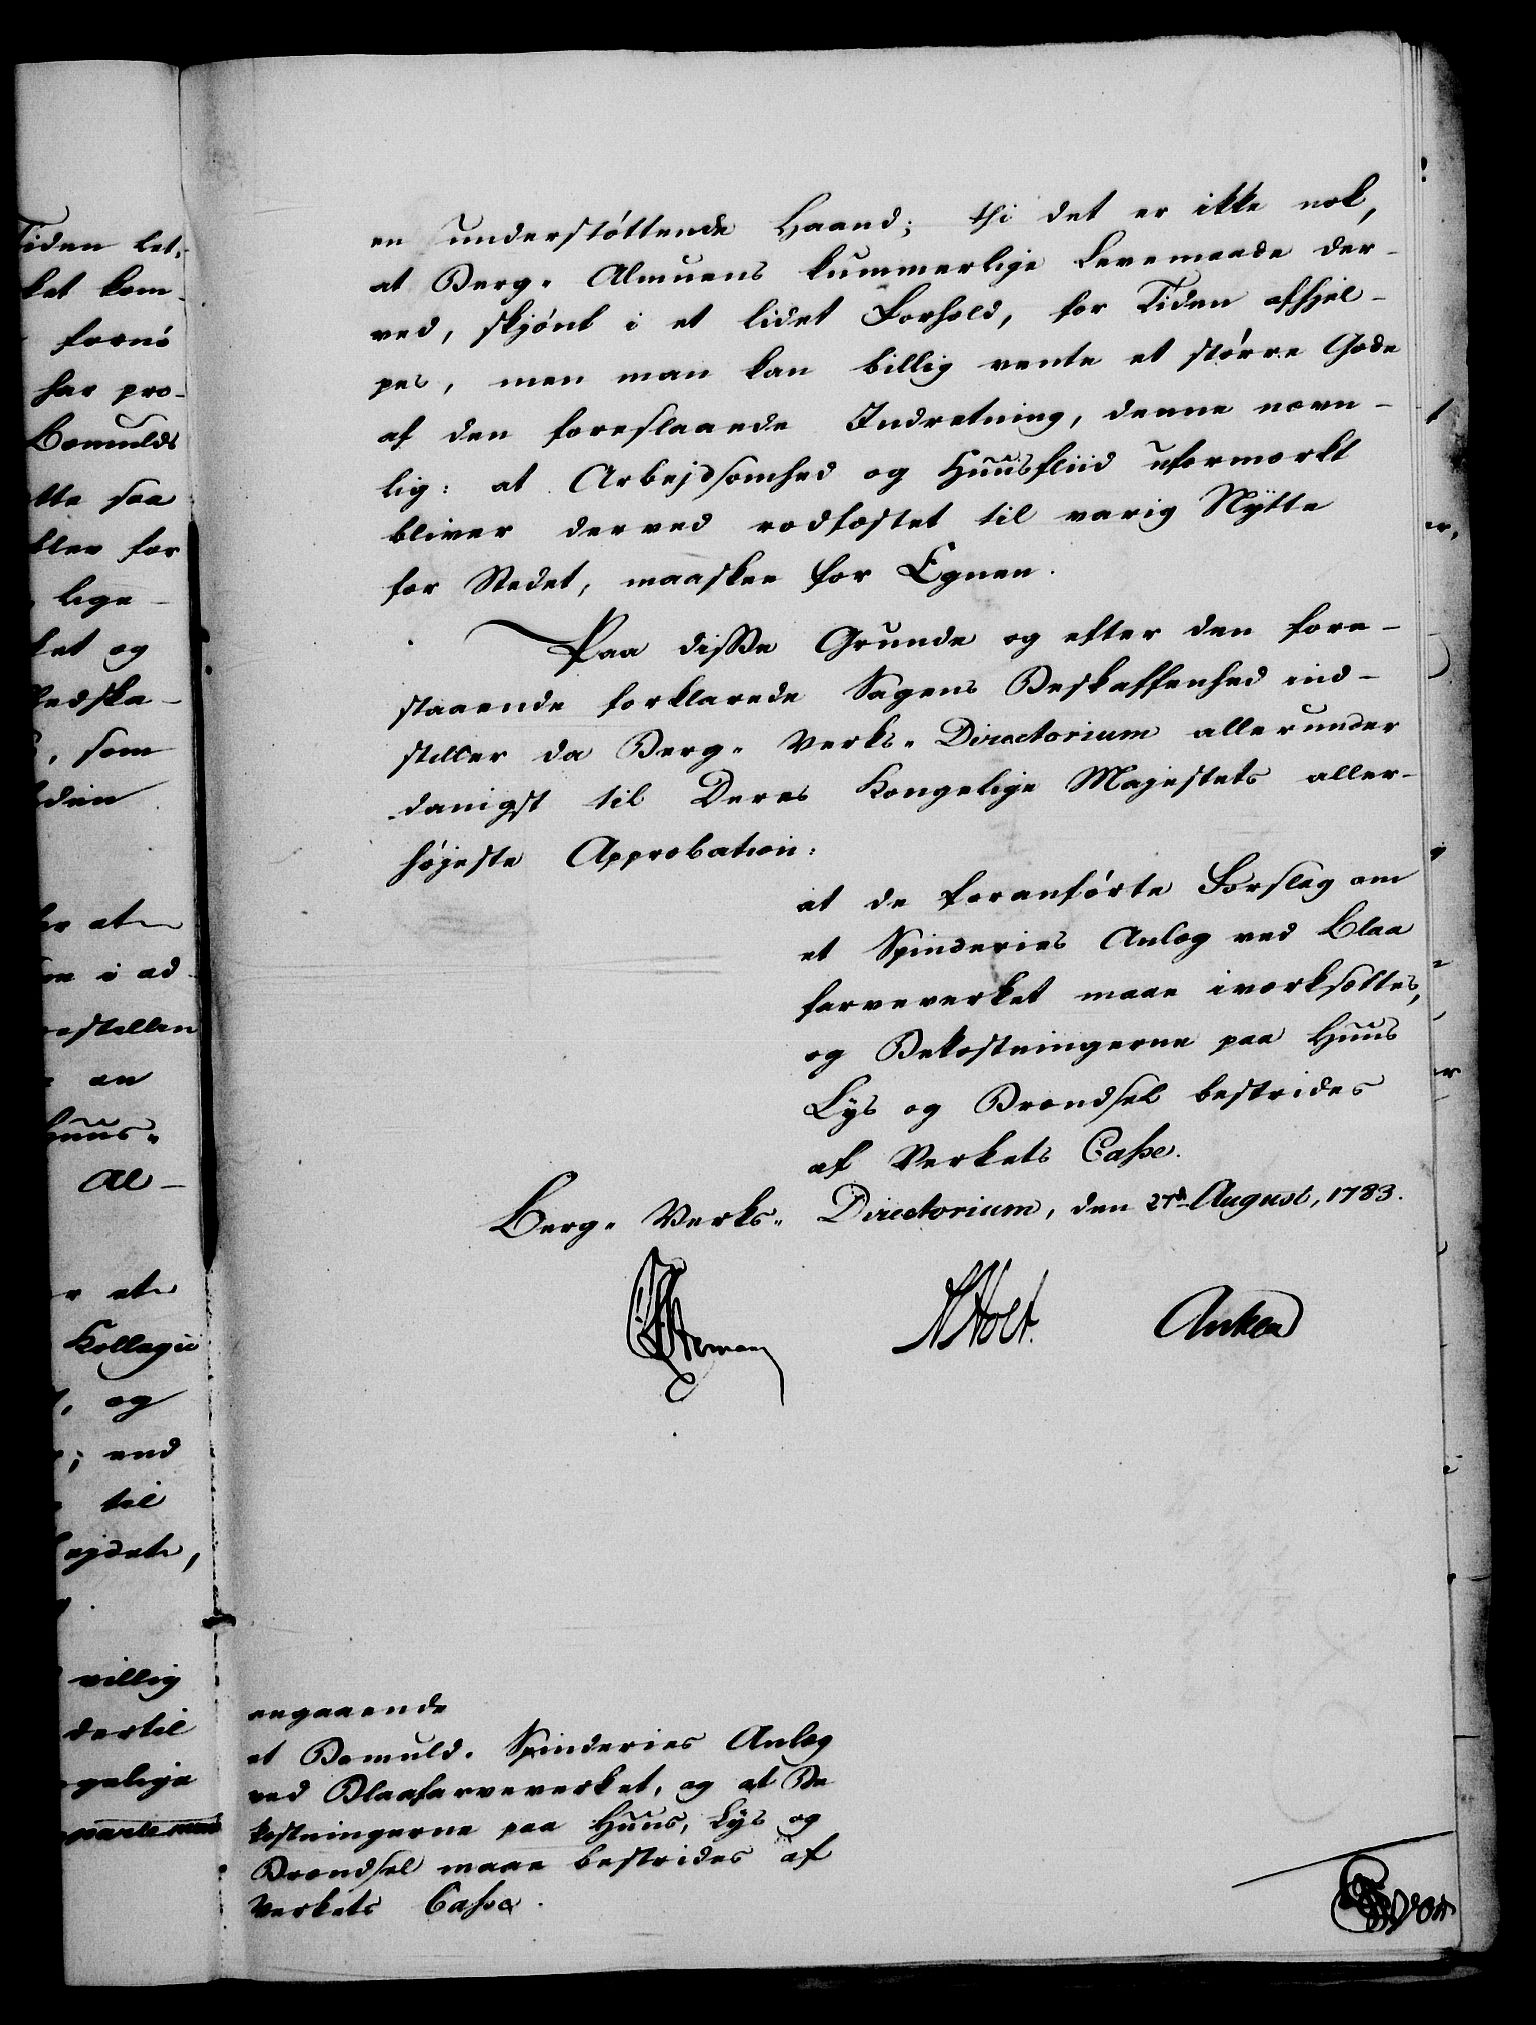 en understøttende Haand; thi det er ikke nok,
at Berg- Almuens kummerlige Levemaade der-
ved, skjønt i et lidet Forhold, for Tiden afhjel-
pes, men man kan billig vente et større Gode
af den foreslaaede Indretning, denne nævn-
lig: at Arbejdsomhed og Huusfliid uformærkt
bliver derved rodfæstet til varig Nytte
for Stedet, maaskee for Egnen.
Paa disse Grunde og efter den fore-
staaende forklarede Sagens Beskaffenhed ind-
stiller da Berg- Verks- Directorium allerunder
danigst til Deres Kongelige Majestets aller-
højeste Approbation:
at de foranførte Forslag om
et Spinderies Anlæg ved Blaa
farveverket maae iværksættes,
og Bekostningerne paa Huus
Lys og Brændsel bestrides
af Verkets Casse.
Berg- Verks- Directorium, den 27de August, 1783.
Holt. Anker
angaaende
et Bomuld- Spinderies Anlæg
ved Blaafarveverket, og at Be
kostningerne paa Huus, Lys og
Brændsel maae bestrides af
Verkets Casse.
Tiden let-
ket kom-
har pro-
Bomulds
tte saa
blev for
lige-
ket og
, som
er at
i ad
estellen
an
Huus-
Al-
Kollegii
, og
; end
til
ejdet,
villig
dertil
gelige